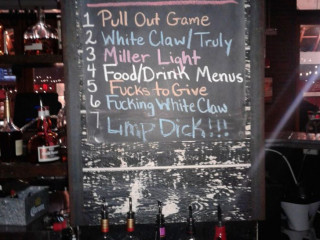 1 Pull Out Game
2 White Claw/Truly
3 Miller Light
4 Food/Drink Menus
5 Fucks to Give
6 Fucking White Claw
7 Limp Dick!!!